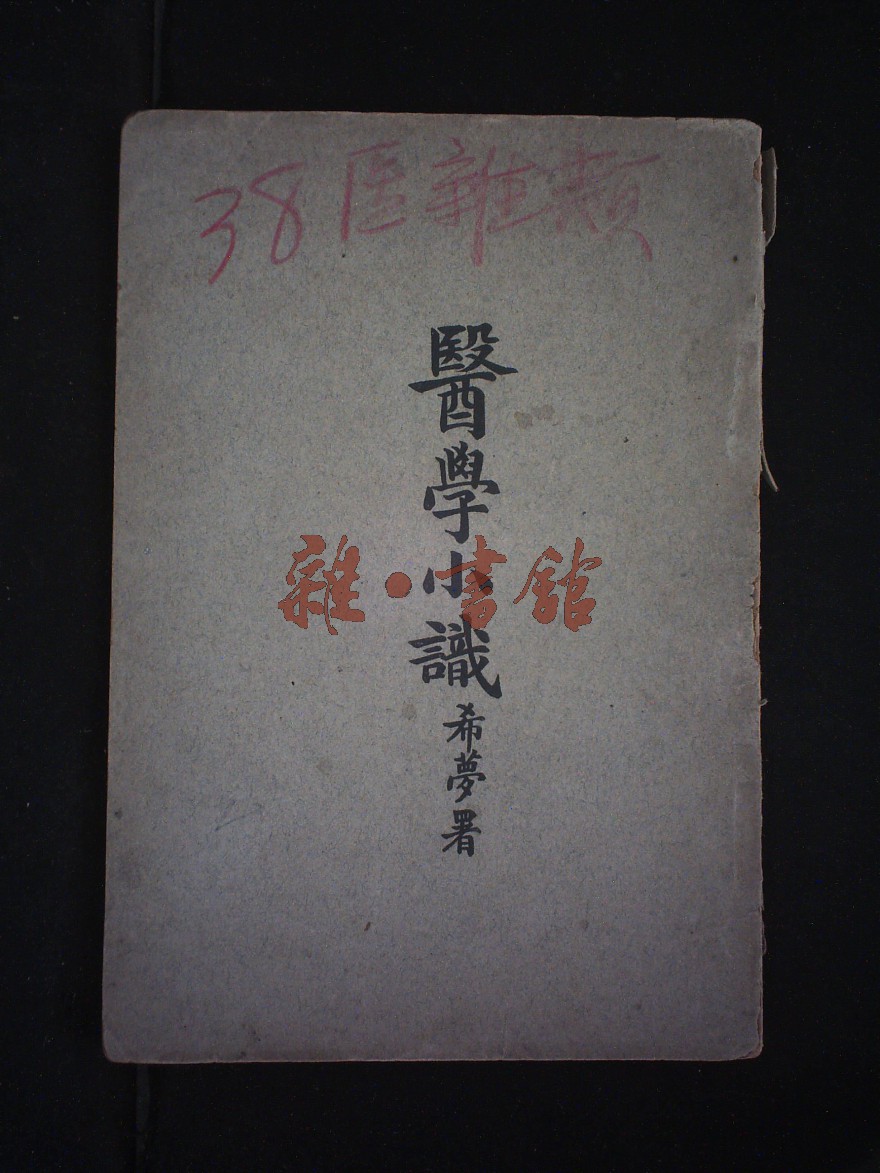 38 医雜類
醫學小識
希夢署
雜·書館